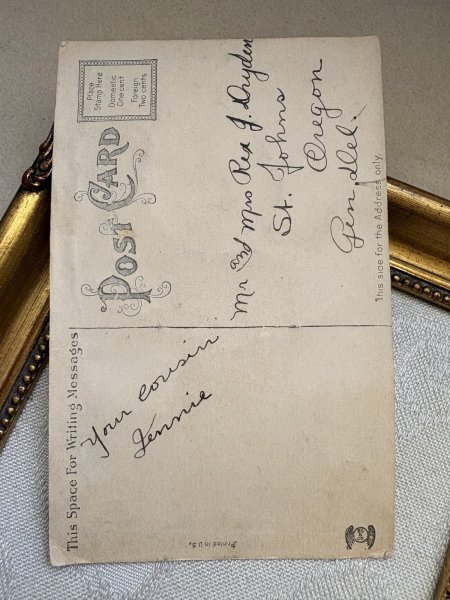 This Space For Writing Messages
POST CARD
Place
Stamp Here
Domestic
One cent
Foreign
Two cents
Your cousin
Jennie
Mr and Mrs Rex J. Dryden
St. Johns
Oregon
Gen. Del.
This side for the Address only.
Printed in U.S,